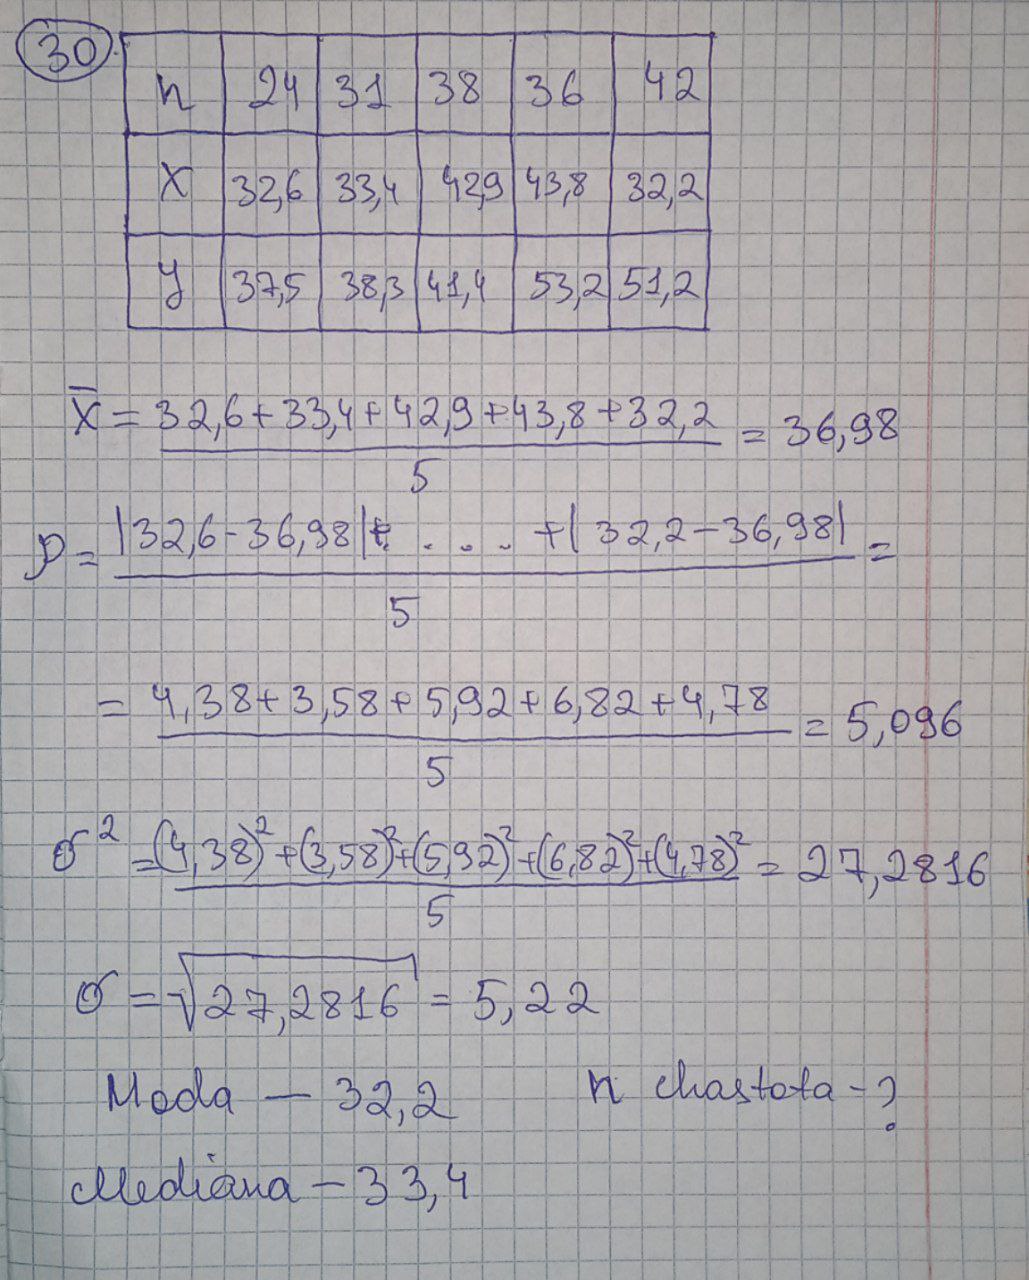 30
n 24 31 38 36 42
X 32,6 33,4 42,9 43,8 32,2
y 37,5 38,3 41,4 53,2 51,2
x̄ = 32,6+33,4+42,9+43,8+32,2 = 36,98
5
ρ = |32,6-36,98|+ . . . . +| 32,2-36,98| =
5
= 4,38+3,58+5,92+6,82+4,78 = 5,096
5
σ² = (4,38)²+(3,58)²+(5,92)²+(6,82)²+(4,78)² = 27,2816
5
σ = √27,2816 = 5,22
Moda — 32,2 n chastota - ?
Mediana — 33,4